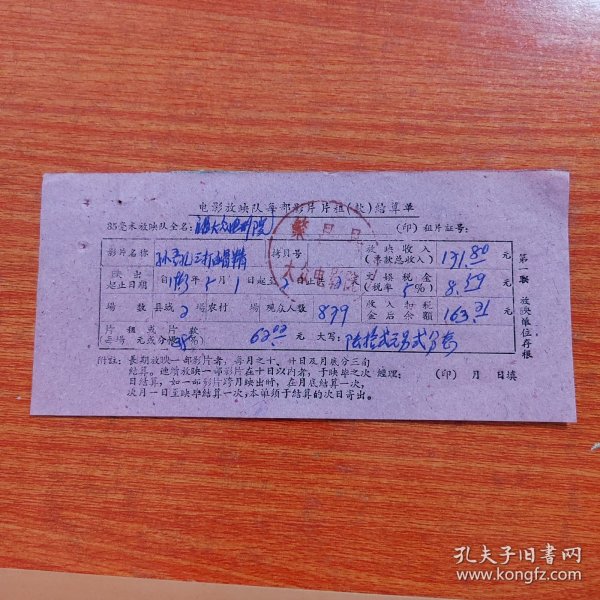 电影放映队每部影片片租(款)结算单
35毫米放映队全名: (印) 租片证号:
繁昌县
大众电影院
影片名称 孙悟空三打白骨精 拷贝号 放映收入(票款总收入) 171.80 元
映出起止日期 自1963年2月1日起至2日止共2天 文娱税金(税率5%) 8.59 元
场数 县城2场农村 场 观众人数 839 收入扣税金后余额 163.21 元
片租或片款 62.02 元 大写: 陆拾贰元另贰分
附注: 长期放映一部影片者, 每月之十、廿日及月底分三向
结算。连续放映一部影片在十日以内者, 于映毕之次 经理: (印) 月 日填
日结算, 如一部影片跨月映出时, 在月底结算一次,
次月一日至映毕结算一次, 本单须于结算的次日寄出。
第一联 放映单位存根
孔夫子旧书网
www.kongfz.com